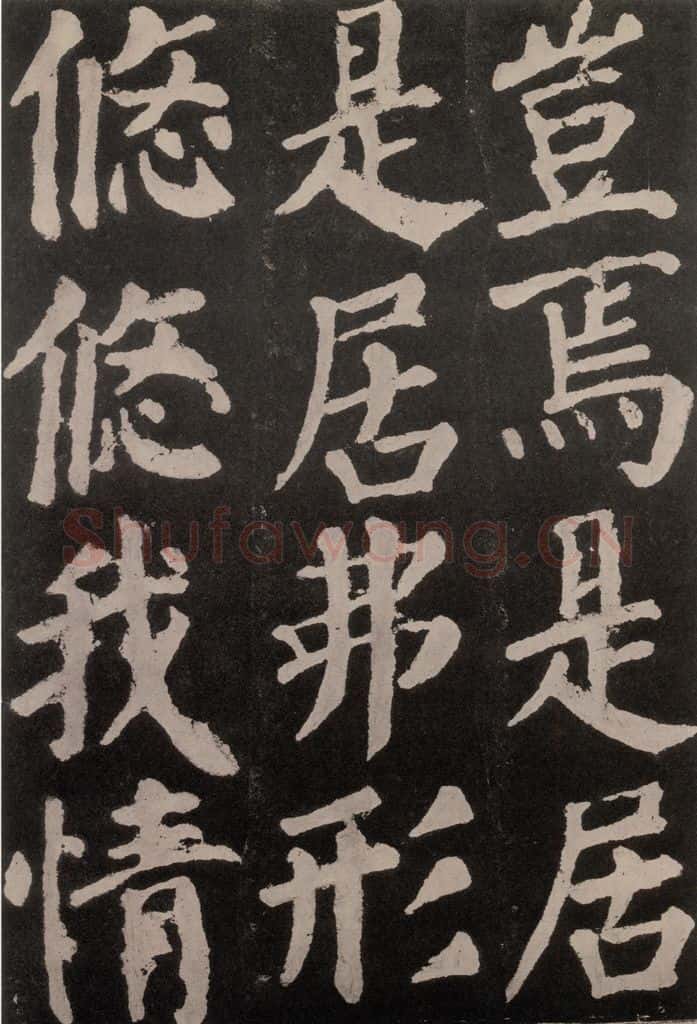 豈焉是居
是居弗形
悠悠我情
Shufawang.CN